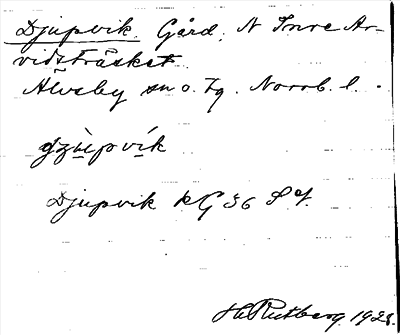 Djupvik. Gård. N Inre Ar-
vidsträsket.
Älvsby sn o. tg. Norrb. l.
Djupvik KG 36 S
H. Rutberg. 1928.